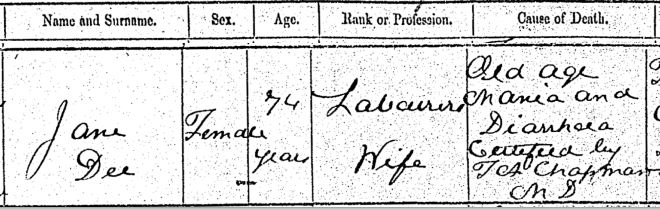 Name and Surname. Sex. Age. Rank or Profession. Cause of Death.
Jane
Dee
Female
74
years
Labourers
Wife
Old age
Mania and
Diarrhoea
Certified by
Chapman
M D